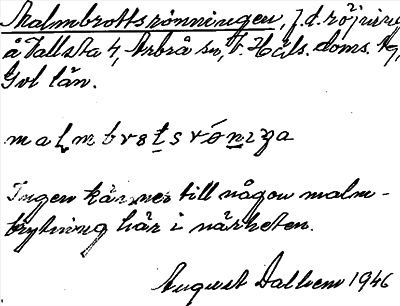 Malmbrottsrönningen, f.d. röjning
å Vallsta 4, Arbrå sn, V. Häls. doms. tg,
Gvl län.
malmbrotsrónıŋa
Ingen känner till någon malm-
brytning här i närheten.
August Dalhem 1946